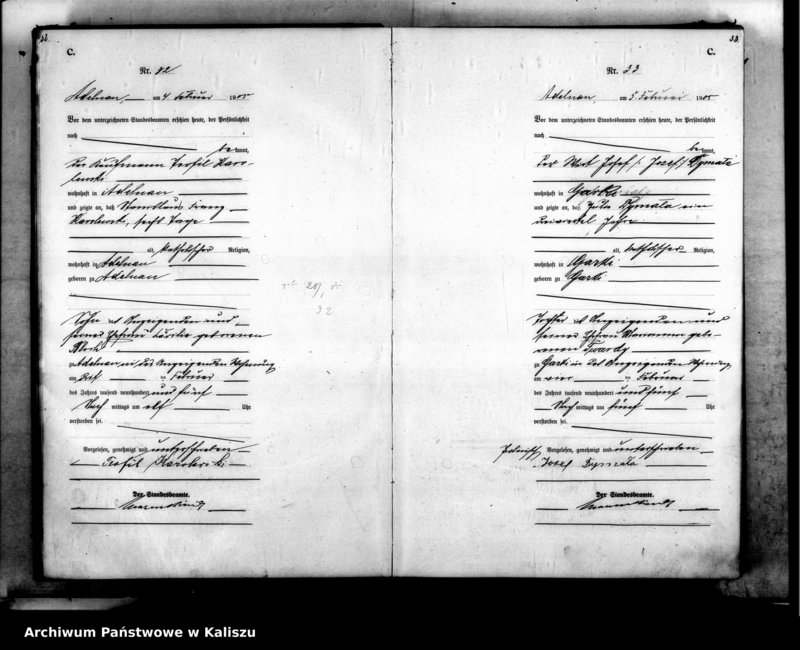 C.
Nr. 32
Adelnau, am 4. Februar 1905
Vor dem unterzeichneten Standesbeamten erschien heute, der Persönlichkeit
nach
bekannt,
der Kaufmann Teofil
wohnhaft in Adelnau
und zeigte an, daß Stanislaus Franz
sechs Tage
alt, katholischer Religion,
wohnhaft in Adelnau
geboren zu Adelnau
Sohn des Anzeigenden und
seiner Ehefrau geborenen
zu Adelnau, in des Anzeigenden Wohnung
am Februar
des Jahres tausend neunhundert und fünf
Nachmittags um elf Uhr
verstorben sei.
Vorgelesen, genehmigt und unterschrieben
Teofil
Der Standesbeamte.
33.
C.
Nr. 33
Adelnau, am 5. Februar 1905
Vor dem unterzeichneten Standesbeamten erschien heute, der Persönlichkeit
nach
bekannt,
der Wirt Josef (Jozef) Dymala
wohnhaft in Garki
und zeigte an, daß Dymala, ein
Jahr
alt, katholischer Religion,
wohnhaft in Garki
geboren zu Garki
Tochter des Anzeigenden und
seiner Ehefrau Marianna gebo-
renen Twardy
zu Garki in des Anzeigenden Wohnung
am vier Februar
des Jahres tausend neunhundert und fünf
Nachmittags um fünf Uhr
verstorben sei.
Vorgelesen, genehmigt und unterschrieben
Josef Dymala
Der Standesbeamte.
Archiwum Państwowe w Kaliszu